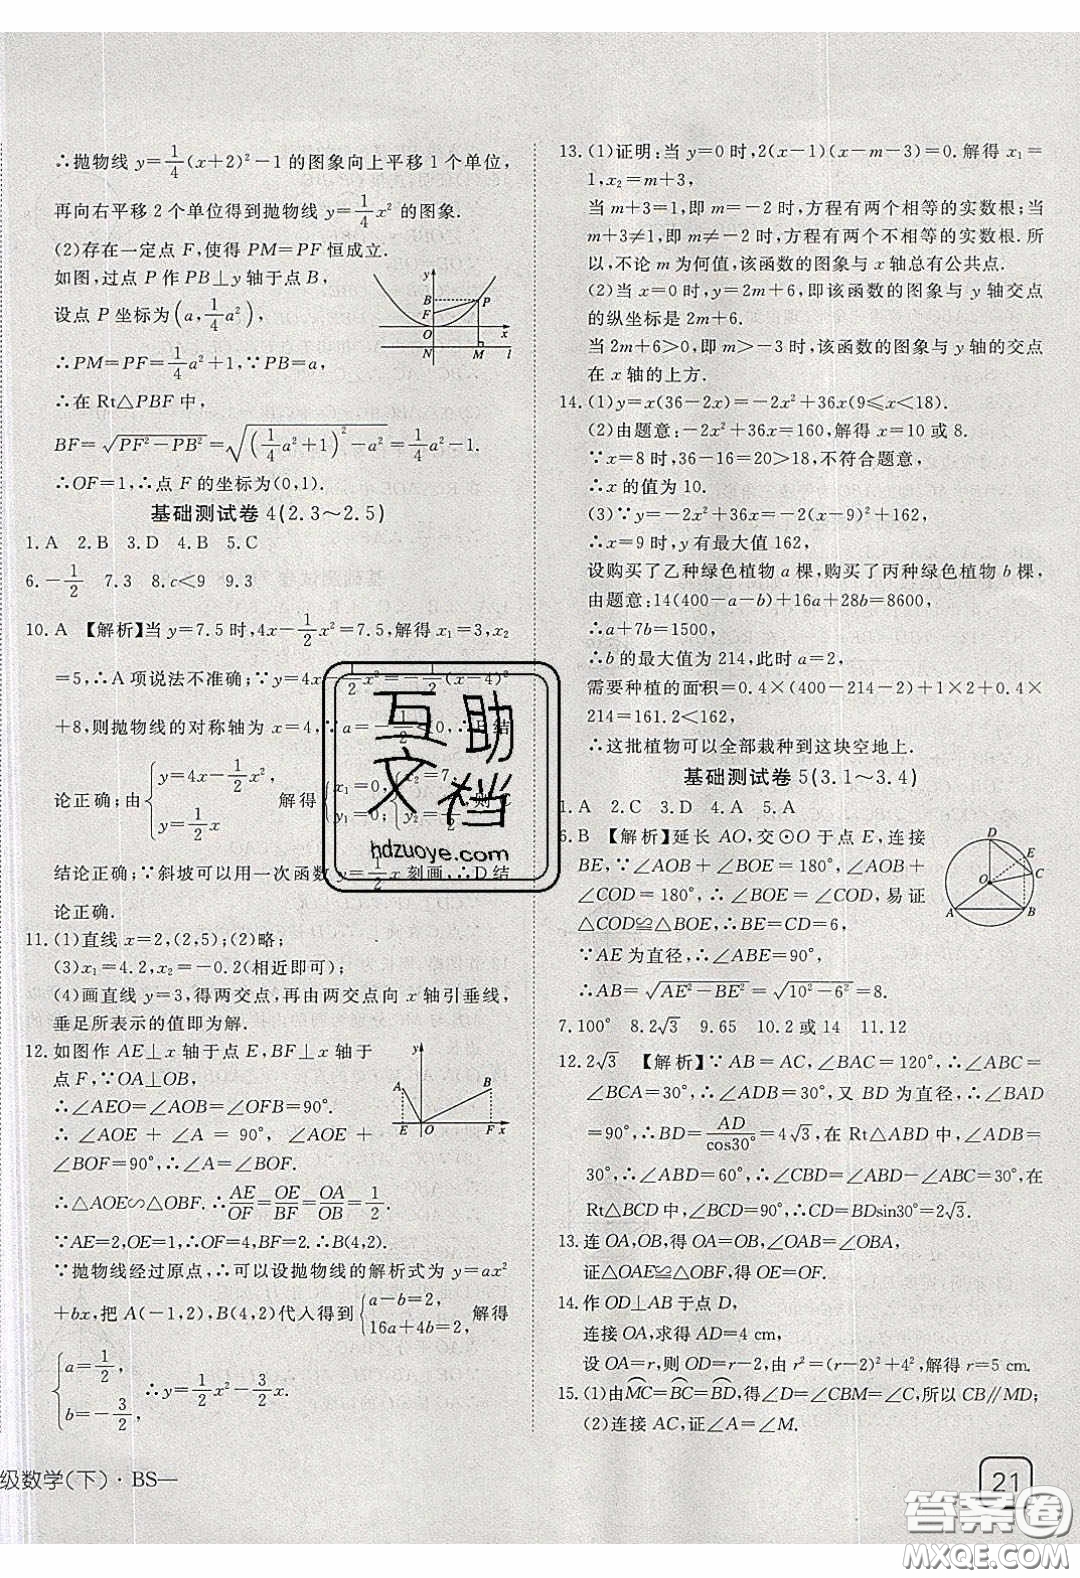 ∴抛物线 y=1/4(x+2)²-1 的图象向上平移 1 个单位,
再向右平移 2 个单位得到抛物线 y=1/4x² 的图象.
(2)存在一定点 F,使得 PM=PF 恒成立.
如图,过点 P 作 PB⊥y 轴于点 B,
设点 P 坐标为(a,1/4a²),
∴PM=PF=1/4a²+1,∵PB=a,
∴在 Rt△PBF 中,
BF=√(PF²-PB²)=√((1/4a²+1)²-a²)=1/4a²-1.
∴OF=1,∴点 F 的坐标为(0,1).
y
B
P
F
O
x
N
M
l
基础测试卷 4(2.3～2.5)
1.A 2.B 3.D 4.B 5.C
6.-1/2 7.3 8.c<9 9.3
10.A 【解析】当 y=7.5 时,4x-1/2x²=7.5,解得 x₁=3,x₂
=5,∴A 项说法不准确;∵y=4x-1/2x²=-1/2(x-4)²
+8,则抛物线的对称轴为 x=4,∵a=-1/2<0,∴B 结
论正确;由{y=4x-1/2x², y=1/2x 解得{x₁=0, y₁=0;{x₂=7, 则 C
结论正确;∵斜坡可以用一次函数 y=1/2x 刻画,∴D 结
论正确.
11.(1)直线 x=2,(2,5);(2)略;
(3)x₁=4.2,x₂=-0.2(相近即可);
(4)画直线 y=3,得两交点,再由两交点向 x 轴引垂线,
垂足所表示的值即为解.
12.如图作 AE⊥x 轴于点 E,BF⊥x 轴于
点 F,∵OA⊥OB,
∴∠AEO=∠AOB=∠OFB=90°.
∴∠AOE + ∠A = 90°, ∠AOE +
∠BOF=90°,∴∠A=∠BOF.
y
A
B
E
O
F
x
∴△AOE∽△OBF.∴AE/OF=OE/BF=OA/OB=1/2.
∵AE=2,OE=1,∴OF=4,BF=2.∴B(4,2).
∵抛物线经过原点,∴可以设抛物线的解析式为 y=ax²
+bx,把 A(-1,2),B(4,2)代入得到{a-b=2, 16a+4b=2, 解得
{a=1/2, b=-3/2, ∴y=1/2x²-3/2x.
级数学(下)·BS—
13.(1)证明:当 y=0 时,2(x-1)(x-m-3)=0.解得 x₁=
1,x₂=m+3,
当 m+3=1,即 m=-2 时,方程有两个相等的实数根;当
m+3≠1,即 m≠-2 时,方程有两个不相等的实数根.所
以,不论 m 为何值,该函数的图象与 x 轴总有公共点.
(2)当 x=0 时,y=2m+6,即该函数的图象与 y 轴交点
的纵坐标是 2m+6.
当 2m+6>0,即 m>-3 时,该函数的图象与 y 轴的交点
在 x 轴的上方.
14.(1)y=x(36-2x)=-2x²+36x(9⩽x<18).
(2)由题意:-2x²+36x=160,解得 x=10 或 8.
∵x=8 时,36-16=20>18,不符合题意,
∴x 的值为 10.
(3)∵y=-2x²+36x=-2(x-9)²+162,
∴x=9 时,y 有最大值 162,
设购买了乙种绿色植物 a 棵,购买了丙种绿色植物 b 棵,
由题意:14(400-a-b)+16a+28b=8600,
∴a+7b=1500,
∴b 的最大值为 214,此时 a=2,
需要种植的面积=0.4×(400-214-2)+1×2+0.4×
214=161.2<162,
∴这批植物可以全部栽种到这块空地上.
基础测试卷 5(3.1～3.4)
1.A 2.C 3.D 4.A 5.A
6.B 【解析】延长 AO,交⊙O 于点 E,连接
BE,∵∠AOB+∠BOE=180°,∠AOB+
∠COD=180°,∴∠BOE=∠COD,易证
△COD≌△BOE,∴BE=CD=6,
∵AE 为直径,∴∠ABE=90°,
∴AB=√(AE²-BE²)=√(10²-6²)=8.
D
E
C
O
A
B
7.100° 8.2√3 9.65 10.2 或 14 11.12
12.2√3 【解析】∵AB=AC,∠BAC=120°,∴∠ABC=
∠BCA=30°,∴∠ADB=30°,又 BD 为直径,∴∠BAD=
90°,∴BD=AD/cos30°=4√3,在 Rt△ABD 中,∠ADB=
30°,∴∠ABD=60°,∴∠CBD=∠ABD-∠ABC=30°,在
Rt△BCD 中,∠BCD=90°,∴CD=BDsin30°=2√3.
13.连 OA,OB,得 OA=OB,∠OAB=∠OBA,
证△OAE≌△OBF,得 OE=OF.
14.作 OD⊥AB 于点 D,
连接 OA,求得 AD=4 cm,
设 OA=r,则 OD=r-2,由 r²=(r-2)²+4²,解得 r=5 cm.
15.(1)由MC⌢=BC⌢=BD⌢,得∠D=∠CBM=∠C,所以 CB∥MD;
(2)连接 AC,证∠A=∠M.
21
互助
文档
hdzuoye.com
答案圈
MXQE.COM